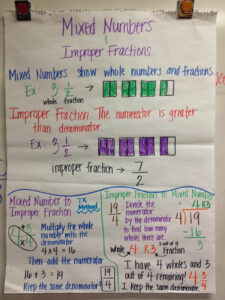 Mixed Numbers
&
Improper Fractions
Mixed Numbers show whole numbers and fractions
Ex: 3 1/2 →
whole fraction
Improper Fraction: The numerator is greater
than denominator
Ex: 3 1/2 →
improper fraction → 7/2
Mixed Number to
Improper Fraction
Method
Multiply the whole
number with the
denominator
4 x 4 = 16
Then add the numerator
16 + 3 = 19
Keep the same denominator!
19/4
Improper Fraction to Mixed Number
19/4
Divide the
numerator
by the denominator
to find how many
wholes there are.
4 R3
4 19
- 16
3
whole 4 R3 out of 4
fraction
I have 4 wholes and 3
out of 4 remaining! 4 3/4
I keep the same denominator